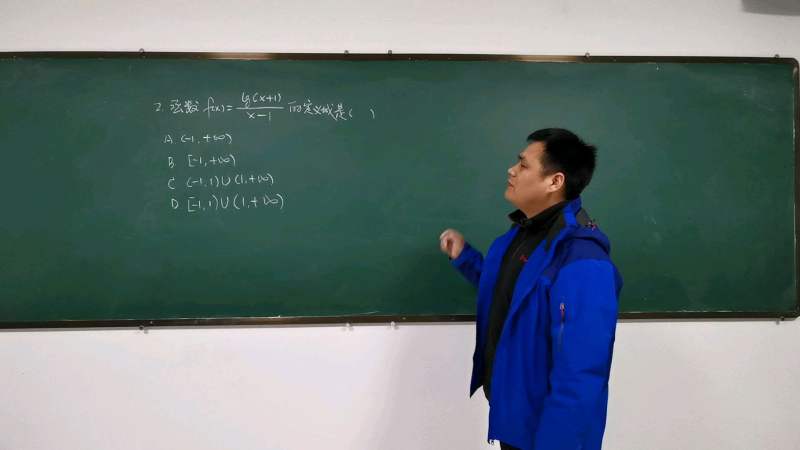 2. 函数 f(x)=lg(x+1)/(x-1) 的定义域是( )
A (-1,+∞)
B. [-1,+∞)
C (-1,1)∪(1,+∞)
D [-1,1)∪(1,+∞)